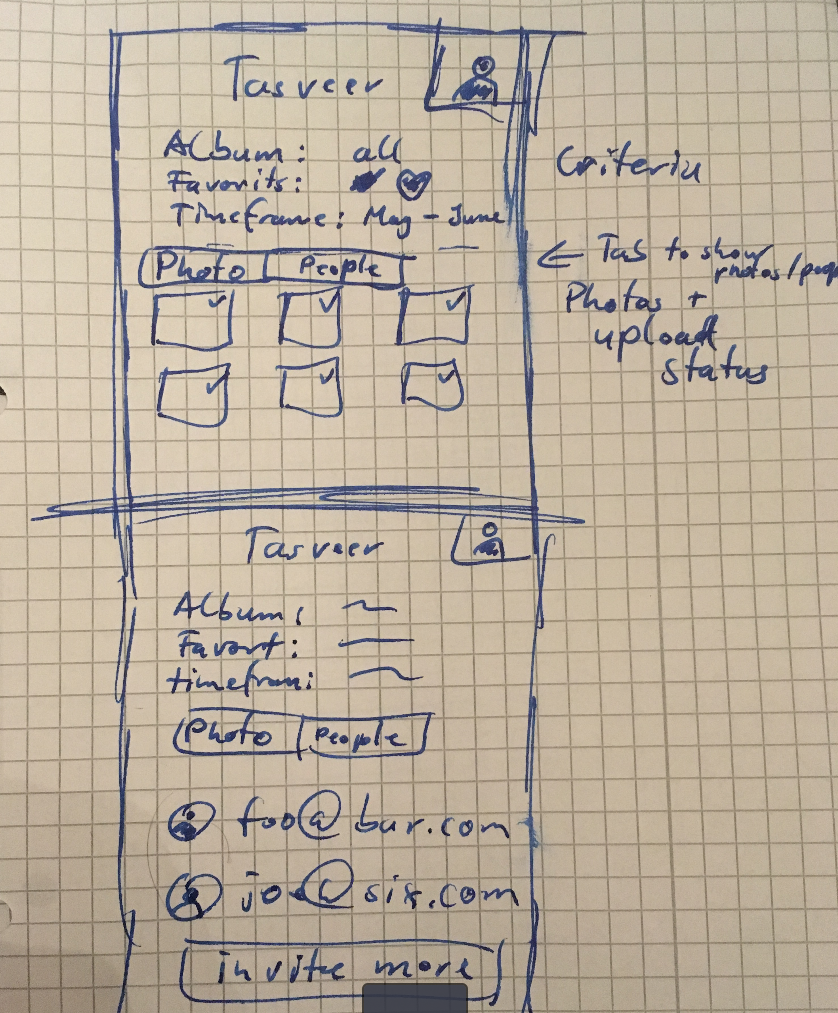 Tasveer
Album: all
Favorits:
Timeframe: May - June
Criteria
Photo People
← Tab to show
photos/peop
Photos +
upload
status
Tasveer
Album:
Favort:
timefram:
Photo People
foo@bar.com
jo@six.com
invite more